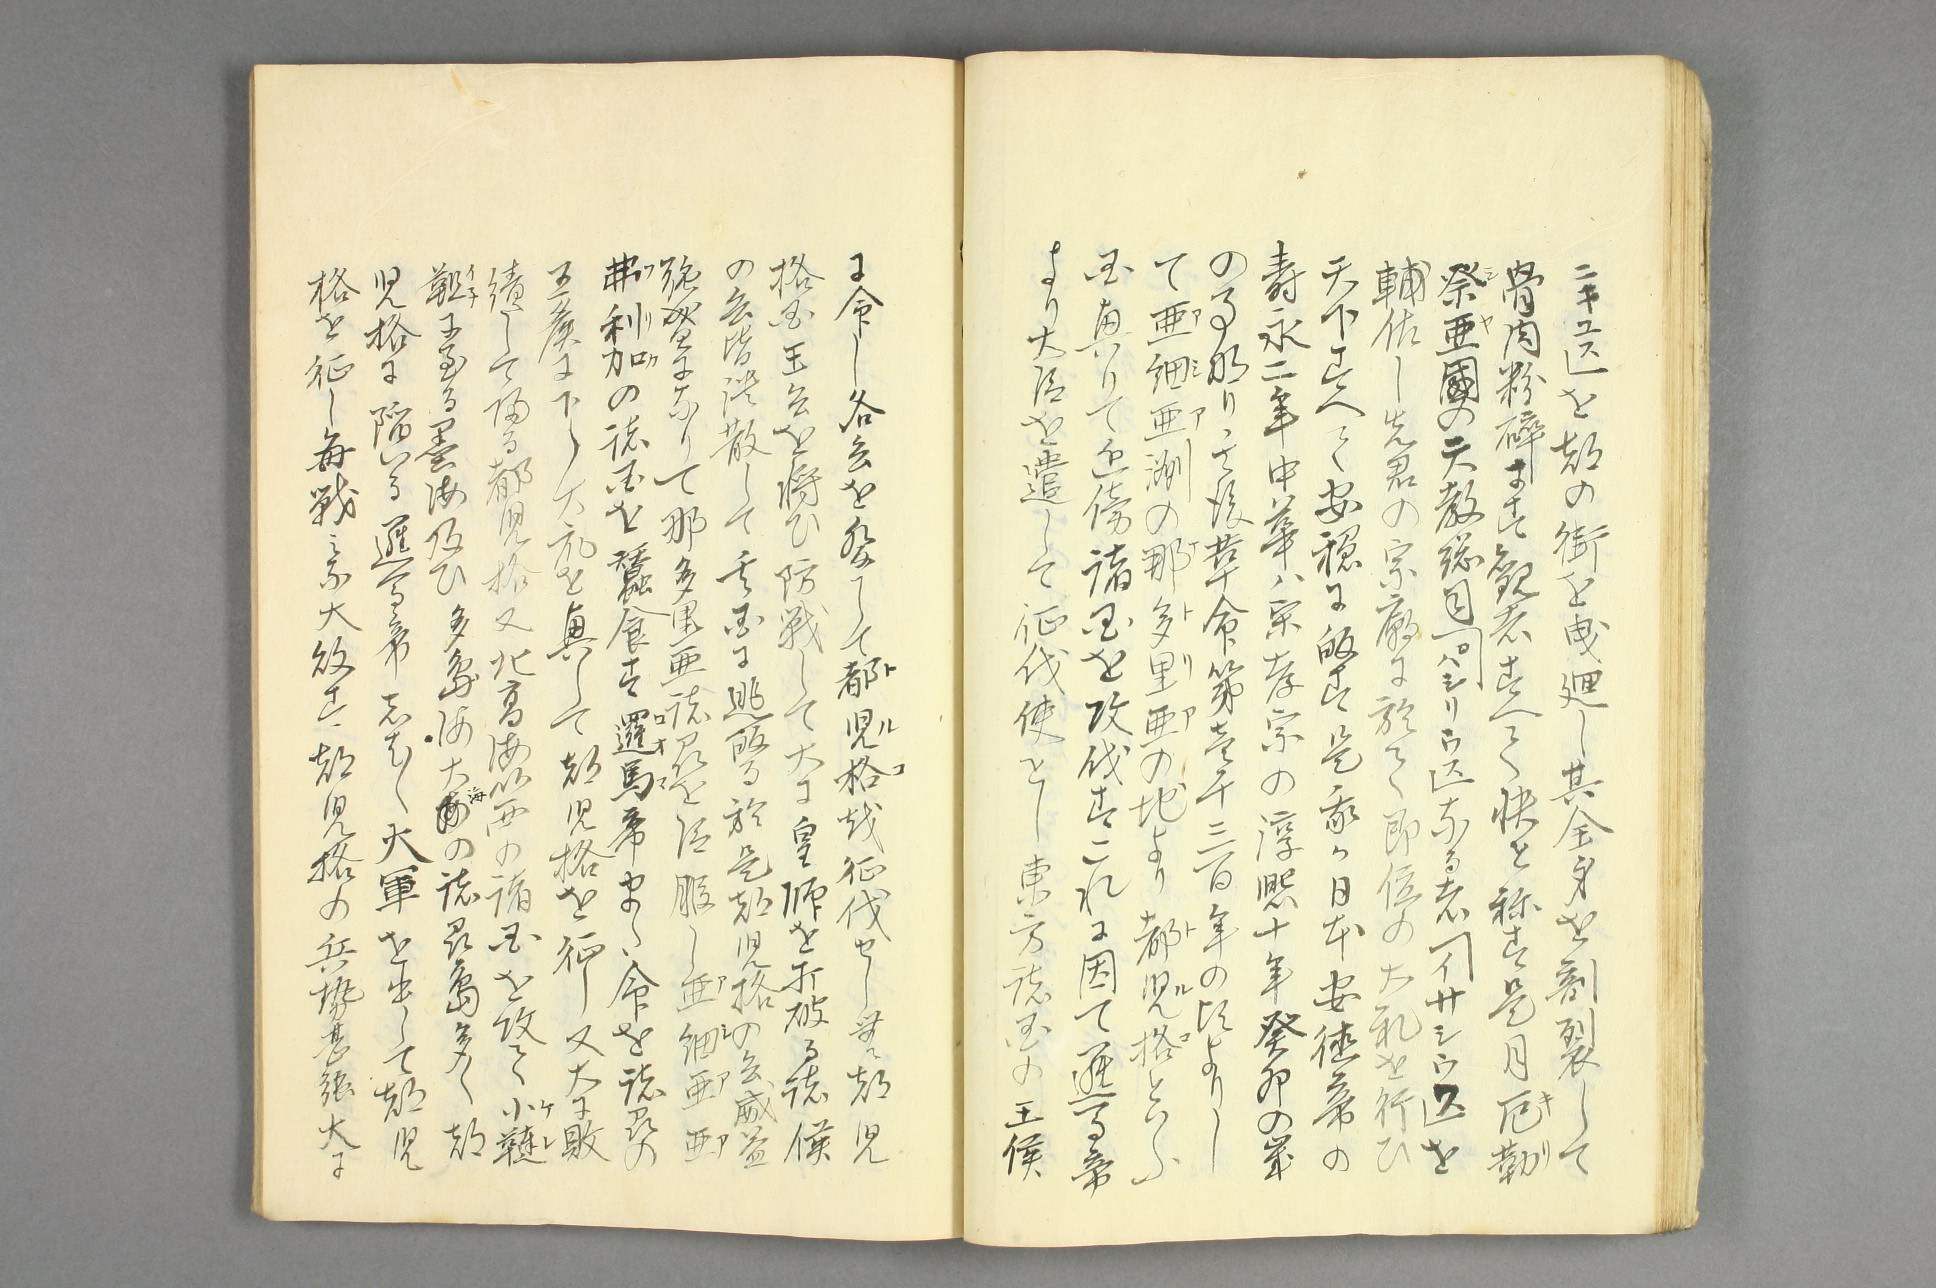 ニキユス」を都の街を曳廻し其全身を割裂して
骨肉粉碎す観者すへて快と称す是月厄勒
祭亜國の天教総司「パシリウス」なる者「イサシウス」を
輔佐し先君の宗廟に於て即位の大礼を行ひ
天下すへて安穏に皈す是我カ日本安徳帝の
壽永二年中華ハ宋孝宗の淳熙十年癸卯の歳
の事也り其後革命第壱千三百年の頃よりし
て亜細亜洲の那多里亜の地より都児格といふ
国興りて近傍諸国を攻伐すこれに因て邏馬帝
より大臣を遣して征伐使とし東方諸国の王侯
に令し各兵を発して都児格越征伐せし其都児
格国王兵を将ひ防戦して大に皇師を打破る諸侯
の兵皆潰散して其国に逃皈る於是都児格の兵威益
強盛になりて那多里亜諸邑を臣服し亜細亜
弗利加の諸国を蠶食す邏馬帝再ヒ令を諸邑の
王侯に下し大兵を興して都児格を征し又大に敗
績して皈る都児格又北高海以西の諸国を攻て小韃
靼に至る墨海及ひ多島海大海の諸邑島多く都
児格に陥いる邏馬帝志はしは大軍を出して都児
格を征し毎戦是大敗す都児格の兵勢甚強大に